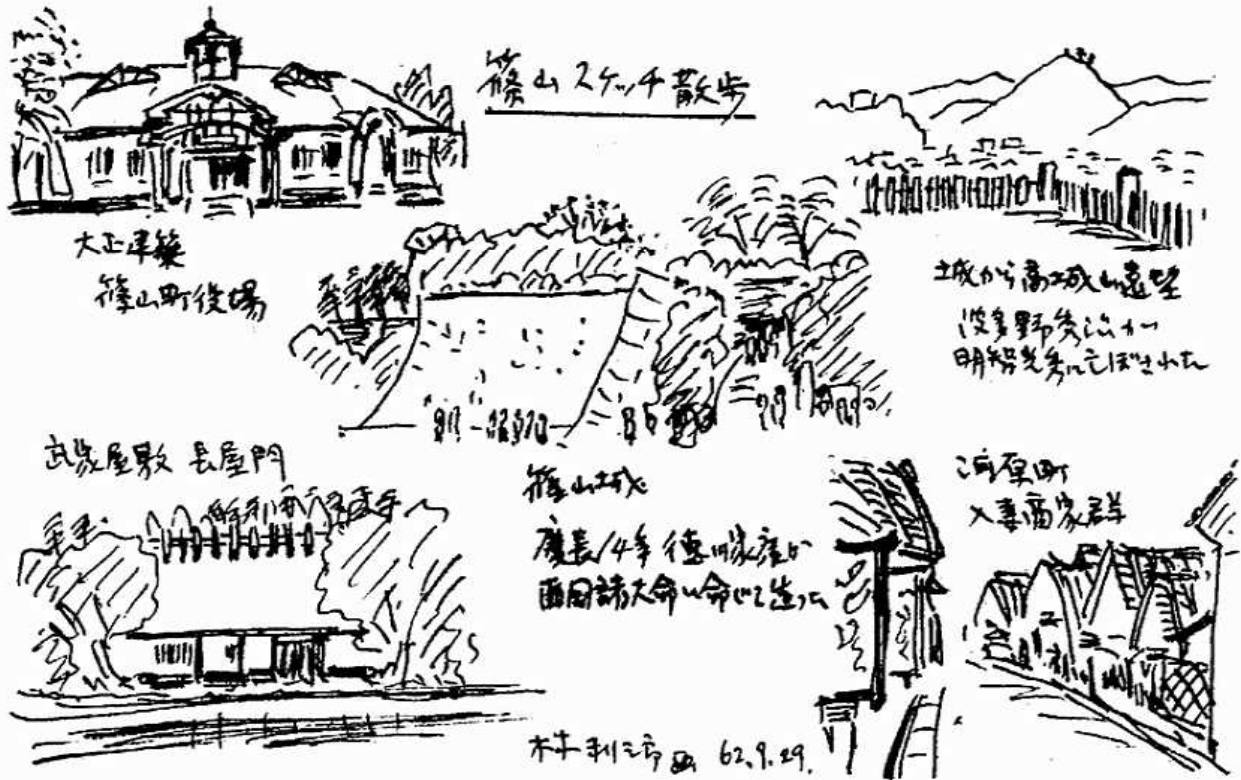 篠山スケッチ散歩
大正建築
篠山町役場
城から高城山遠望
波多野秀治が
明智光秀にほろぼされた
武家屋敷 長屋門
篠山城
慶長14年 徳川家康が
西国諸大名に命じて造った
河原町
入妻商家群
利三郎 画 62.9.29.